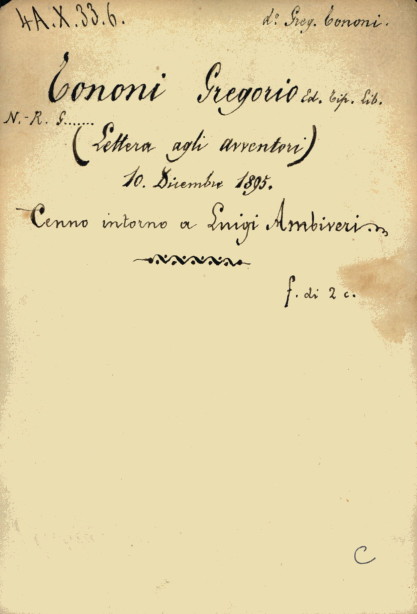 4A.X.33.6.
d.º Greg. Tononi.
Tononi Gregorio Ed. Tip. Lib.
N.-R. G.......
(Lettera agli avventori)
10. Dicembre 1895.
Cenno intorno a Luigi Ambiveri.
f. di 2 c.
C